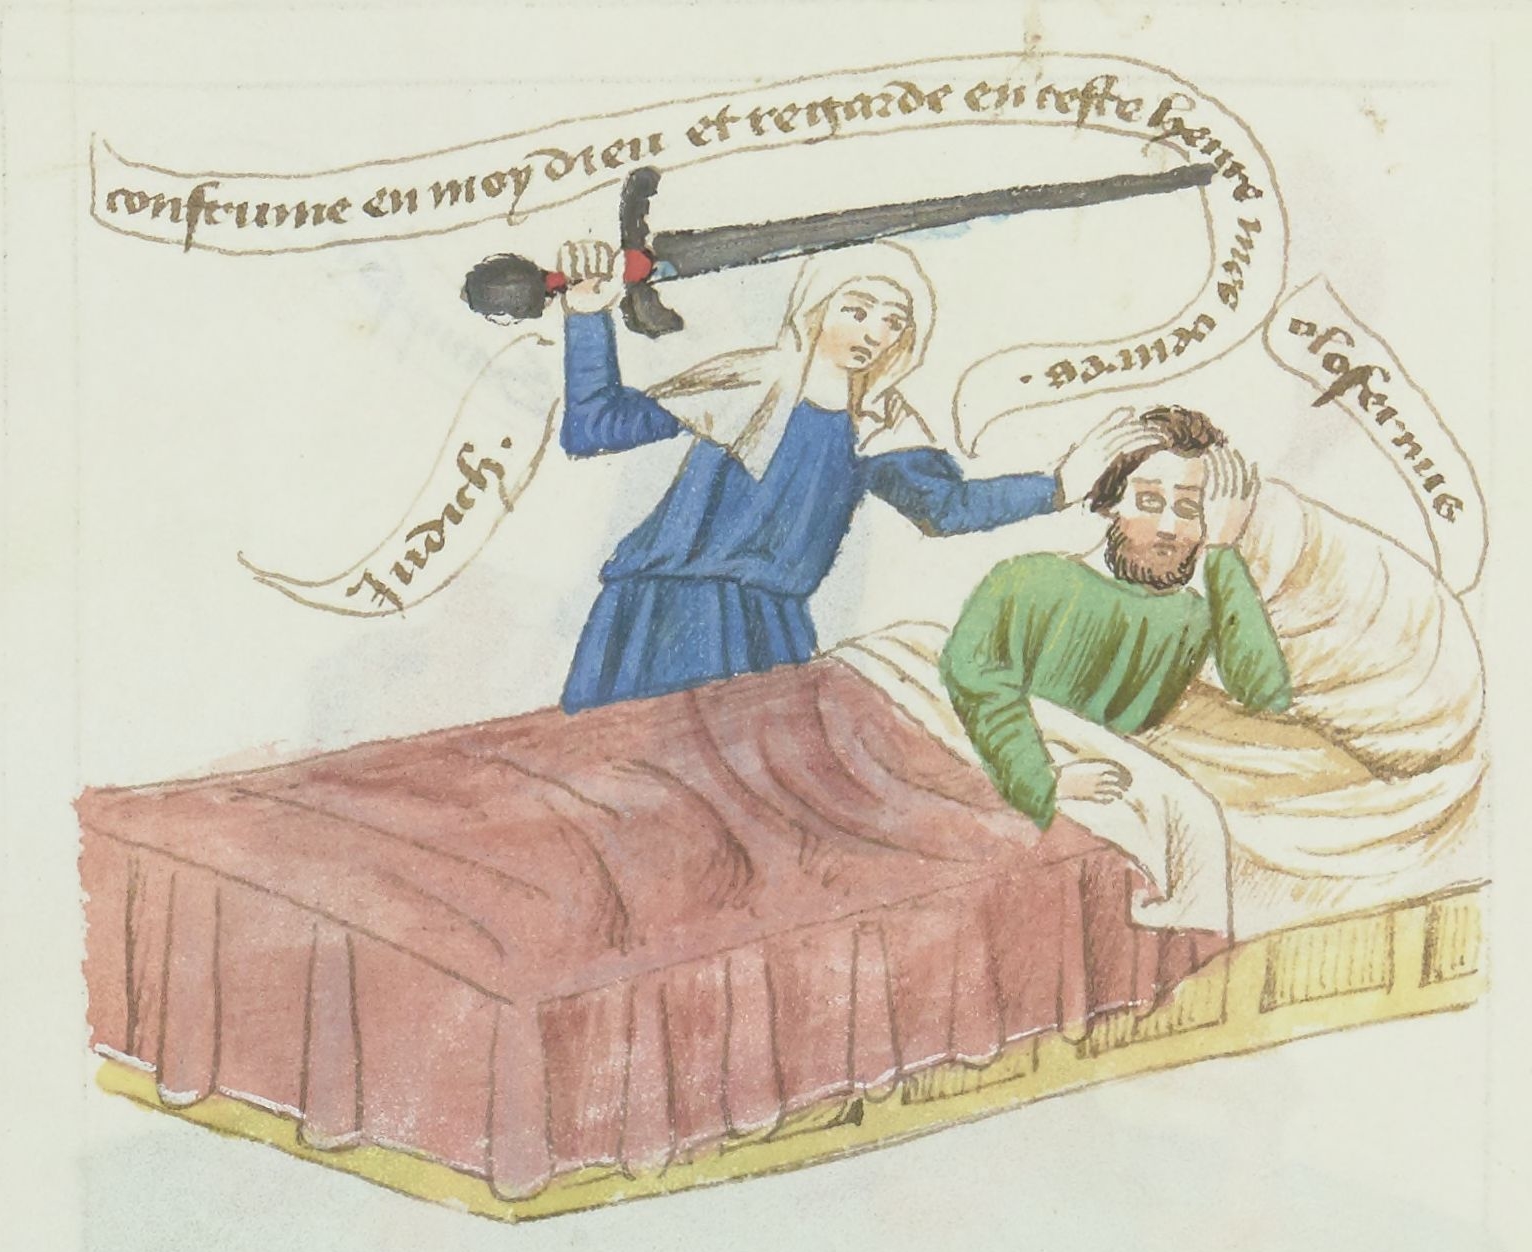 confirme en moy dieu et regarde en ceste heure mes œuvres.
Judich.
olofernus